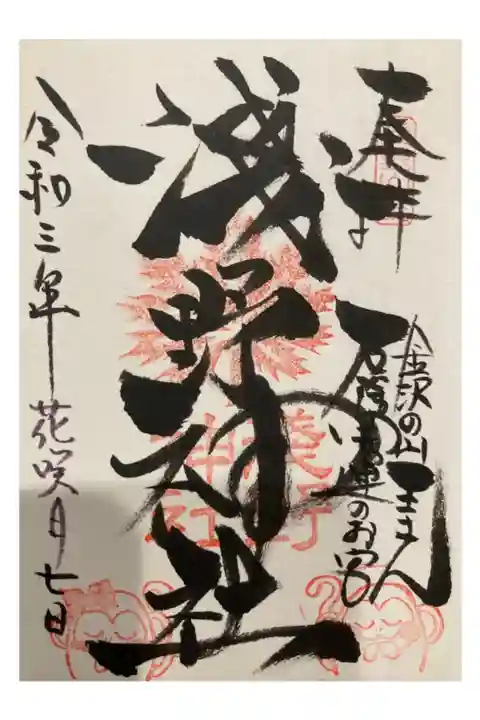 奉拝
金沢の山王さん
厄除開運のお宮
浅野神社
浅野
神社
令和三年花咲月七日